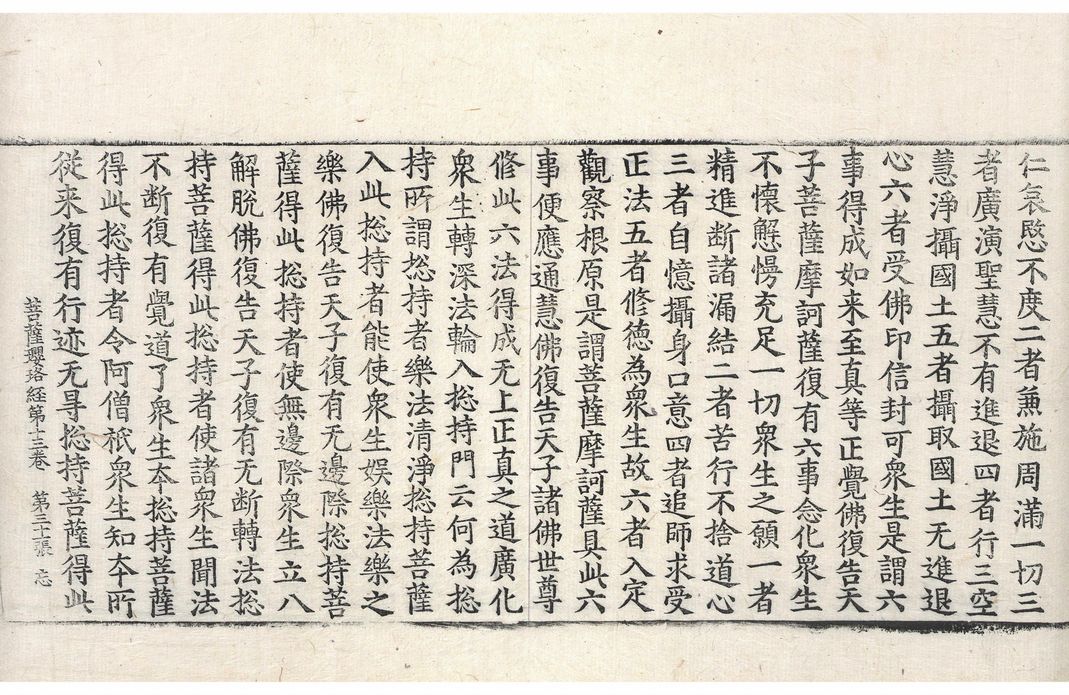 仁哀愍不度二者兼施周滿一切三
者廣演聖慧不有進退四者行三空
慧淨攝國土五者攝取國土无進退
心六者受佛印信封可衆生是謂六
事得成如来至真等正覺佛復告天
子菩薩摩訶薩復有六事念化衆生
不懐懈慢充足一切衆生之願一者
精進断諸漏結二者苦行不捨道心
三者自憶攝身口意四者追師求受
正法五者修德為衆生故六者入定
觀察根原是謂菩薩摩訶薩具此六
事便應通慧佛復告天子諸佛世尊
修此六法得成无上正真之道廣化
衆生轉深法輪入捴持門云何為捴
持所謂捴持者樂法清淨捴持菩薩
入此捴持者能使衆生娯樂法樂之
樂佛復告天子復有无邊際捴持菩
薩得此捴持者使無邊際衆生立八
解脫佛復告天子復有无断轉法捴
持菩薩得此捴持者使諸衆生聞法
不断復有覺道了衆生夲捴持菩薩
得此捴持者令阿僧祇衆生知夲所
従来復有行迹无㝵捴持菩薩得此
菩薩瓔珞経第十三卷 第三十張 忘